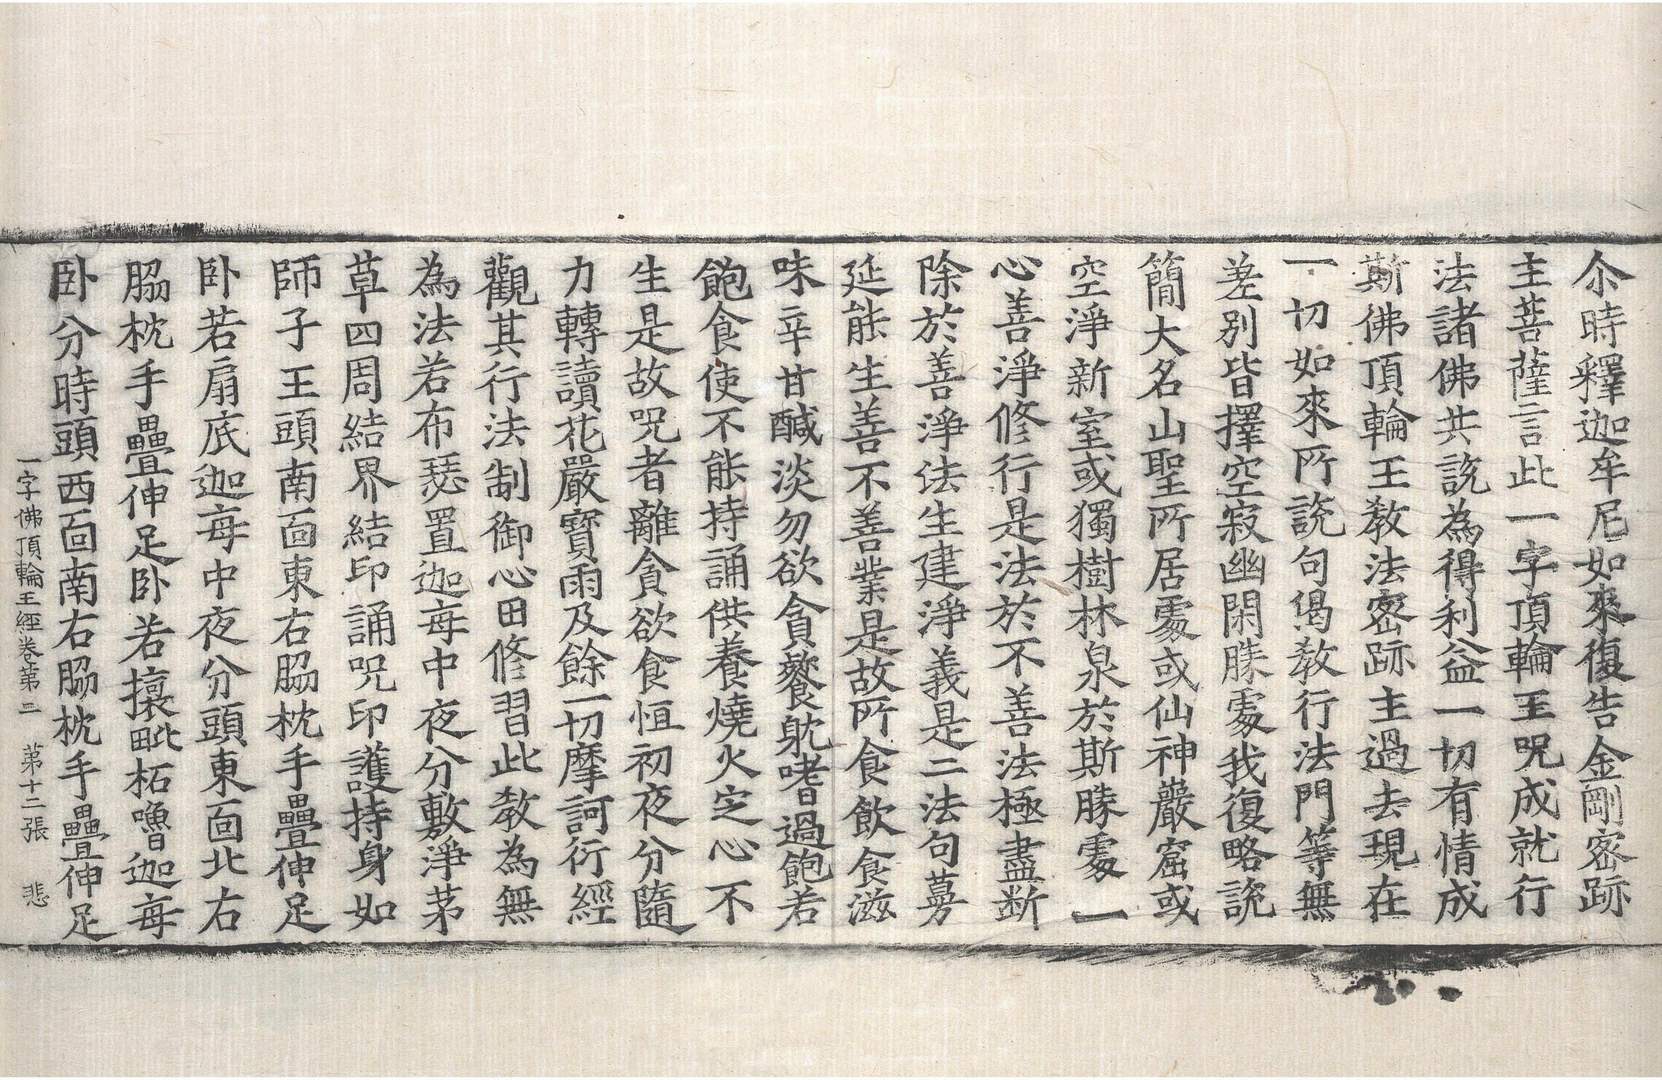 尒時釋迦牟尼如來復告金剛密跡
主菩薩言此一字頂輪王呪成就行
法諸佛共說為得利益一切有情成
斯佛頂輪王教法密跡主過去現在
一切如來所說句偈教行法門等無
差別皆擇空寂幽閑勝處我復略說
簡大名山聖所居處或仙神巖窟或
空淨新室或獨樹林泉於斯勝處一
心善淨修行是法於不善法極盡断
除於善淨法生建淨義是二法句蒡
延能生善不善業是故所食飲食滋
味辛甘醎淡勿欲貪饕躭嗜過飽若
飽食使不能持誦供養燒火定心不
生是故呪者離貪欲食恒初夜分隨
力轉讀花嚴寶雨及餘一切摩訶衍經
觀其行法制御心田修習此教為無
為法若布瑟置迦每中夜分敷淨茅
草四周結界結印誦呪印護持身如
師子王頭南面東右脇枕手疊伸足
卧若扇底迦每中夜分頭東面北右
脇枕手疊伸足卧若攘毗柘嚕迦每
卧分時頭西面南右脇枕手疊伸足
一字佛頂輪王經卷第二　第十二張　悲